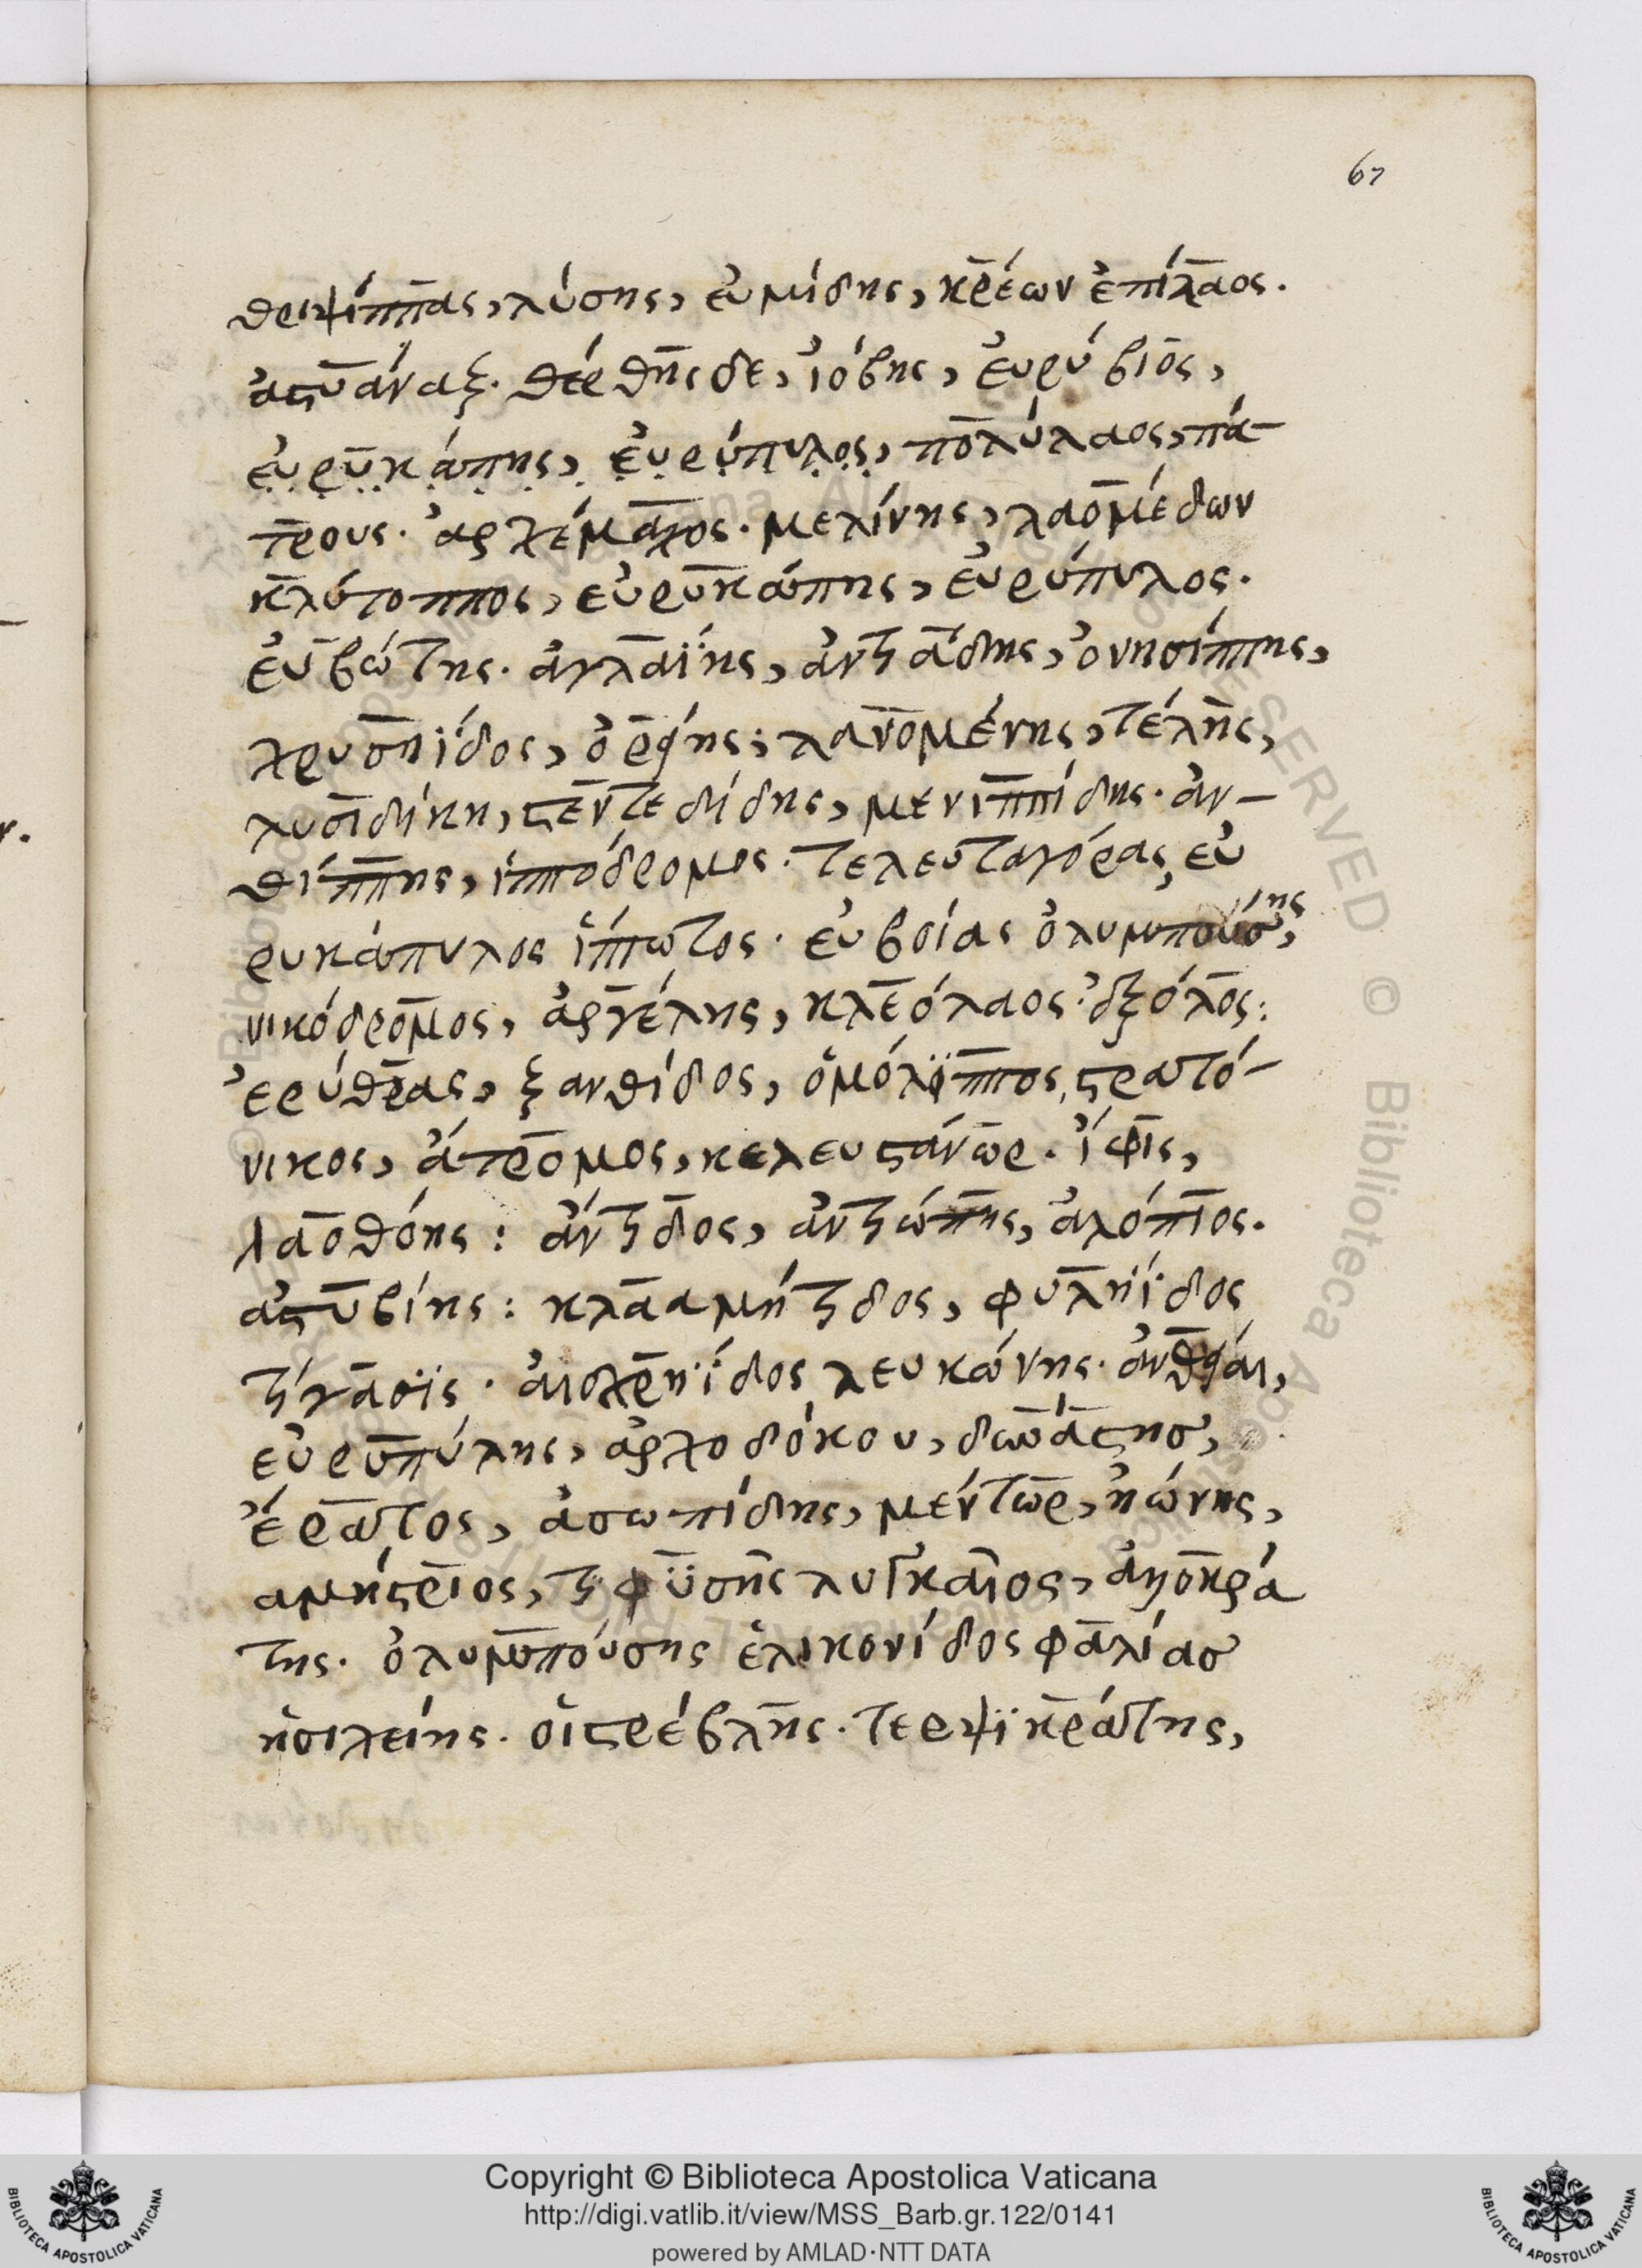 67
θρεψίππας, λύσης, ευμίδης, κρέων ἐπίλαος.
ἀστυάναξ. θέρθης δε, ἰόβης, ἐυρύβιος,
ἐυρυκάπης, ἐυρύπυλος, πολύλαος, πά-
τρους. ἀρχέμαχος. μελίνης, λαομέδων
κλύτοππος, εὐρυκάπης, ευρύπυλος.
ἐυβώτης. ἀγλαΐης, ἀντιάδης, ὀνησίππης,
χρυσηΐδος, ὀρφης; λανομένης, τέλης,
λυσιδίκη, στεντεδίδης, μενιππίδης. ἀν-
θίππης, ἱπόδρομος. τελευταγόρας, εὐ
ρυκάπυλος ἵππωτος. εὐβοίας ὀλυμπούσης,
νικόδρομος, ἀργέλης, κλεόλαος. ὀξόλος:
ἐρύθρας, ξανθίδος, ὁμόλιππος, στρατό-
νικος, ἄτρομος, κελευστάνωρ. ἴφις,
λαοθόης: ἄντιδος, ἀντιώπης, ἀλόπιος.
ἀστυβίης: κλααμήτιδος, φυληΐδος
τίγασϊς. ἀισχρηΐδος λευκώνης. ἀνθφάι,
εὐρυπύλης, ἀρχοδόκου, δωυάστησ,
ἔρατος, ἀσωπίδης, μέντωρ, ἠώνης,
αμήστριος, τιφϋσης λυγκαῖος, ἁλοκρά
της. ὀλυμπούσης ἑλικονίδος φαλίασ
ἡσιχείης. οἰστρέβλης. τερψϊκράτης,
Copyright © Biblioteca Apostolica Vaticana
http://digi.vatlib.it/view/MSS_Barb.gr.122/0141
powered by AMLAD·NTT DATA
BIBLIOTECA APOSTOLICA VATICANA
BIBLIOTECA APOSTOLICA VATICANA